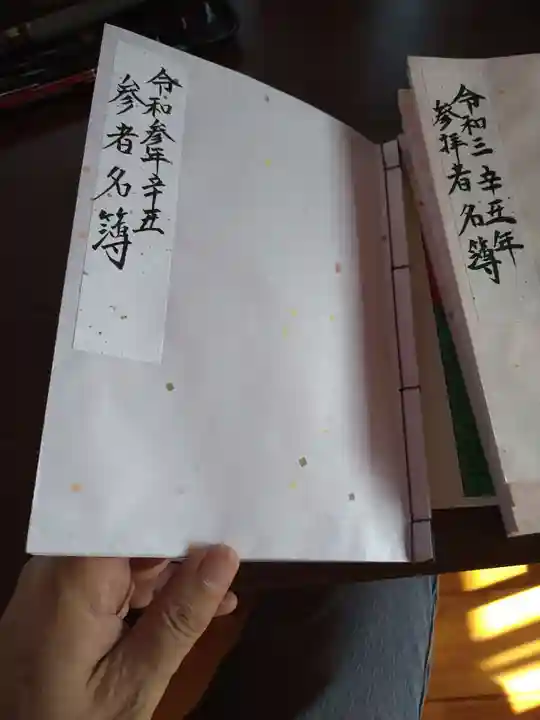 令和参年辛丑
参者名簿
令和三辛丑年
參拝者名簿